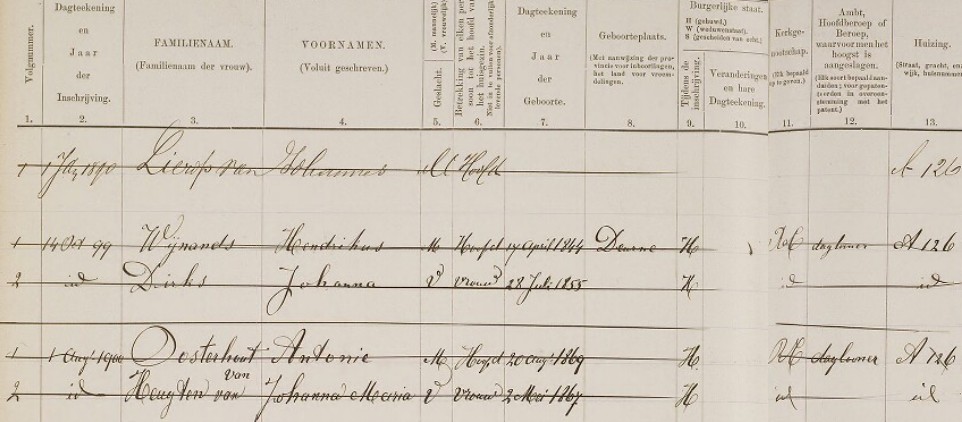 Volgnummer.
1.
Dagteekening
en
Jaar
der
Inschrijving.
2.
FAMILIENAAM.
(Familienaam der vrouw).
3.
VOORNAMEN.
(Voluit geschreven.)
4.
Geslacht. (M. mannelijk) (V. vrouwelijk)
5.
Betrekking van elken per-
soon tot het hoofd van
het huisgezin.
6.
Dagteekening
en
Jaar
der
Geboorte.
7.
Geboorteplaats.
8.
Burgerlijke staat.
H (gehuwd.)
W (weduwenstaat).
S (gescheiden van echt.)
Tijdens de inschrijving.
9.
Veranderingen
en hare
Dagteekening.
10.
Kerkge-
nootschap.
11.
Ambt,
Hoofdberoep of
Beroep,
waarvoor men het
hoogst is
aangeslagen.
12.
Huizing.
(Straat, gracht, en
wijk, huisnummer
13.
1 1 Jan 1890 Lierop van Johannes M Hoofd A 126
1 14 Oct 99 Wijnands Hendrikus M Hoofd 17 april 1844 Deurne H RK daglooner A 126
2 id Dirks Johanna V vrouw 28 Juli 1855 H id id
1 1 Aug. 1900 Oosterhout van Antonie M Hoofd 20 aug. 1869 H RK daglooner A 126
2 id Heugten van Johanna Maria V vrouw 2 Mei 1867 H id id